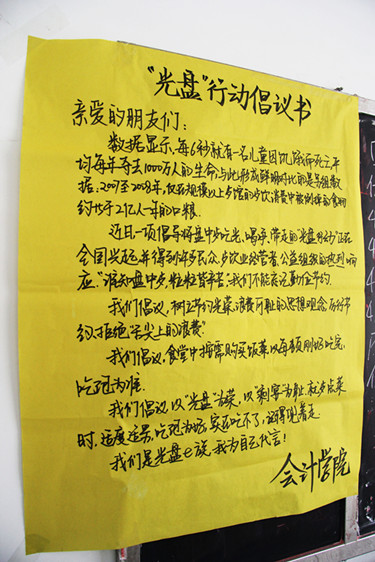 “光盘”行动倡议书
亲爱的朋友们：
数据显示，每6秒就有一名儿童因饥饿而死亡，平
均每年夺去1000万人的生命，与此形成鲜明对比的是另组数
据：2007至2008年，仅在规模以上餐馆的餐饮消费中被倒掉的食物
约等于2亿人一年的口粮。
近日一项倡导将盘中吃光、喝净、带走的“光盘行动”正在
全国兴起并得到许多民众、餐饮业经营者、公益组织的热烈响
应。“谁知盘中餐，粒粒皆辛苦”我们不能忘记勤俭节约。
我们倡议，树立节约光荣，浪费可耻的思想观念，厉行节
约，拒绝“舌尖上的浪费”
我们倡议，食堂中按需购买饭菜，以每顿刚好吃完，
吃饱为准。
我们倡议，以“光盘”为荣，以“剩宴”为耻，就餐点菜
时，适度适另，吃饱为好，实在吃不了，记得兜着走
我们是光盘e族，我为自己代言！
会计学院